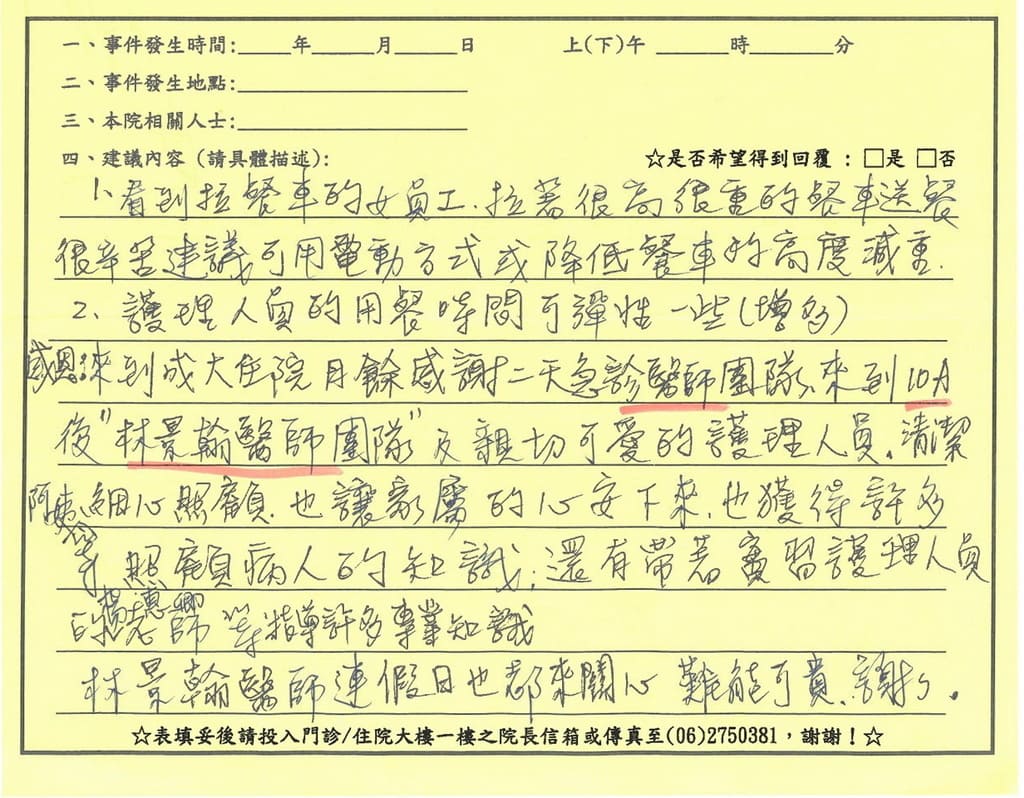 一、事件發生時間:_____年______月______日 上(下)午 _______時________分
二、事件發生地點:
三、本院相關人士:
四、建議內容 (請具體描述): ☆是否希望得到回覆 : □是 □否
1、看到拉餐車的女員工、拉著很高很重的餐車送餐
很辛苦建議可用電動方式或降低餐車的高度減重.
2、護理人員的用餐時間可彈性一些(增多)
感恩來到成大住院月餘感謝二天急診醫師團隊來到10A
後"林景翰醫師團隊"及親切可愛的護理人員.清潔
阿姨等細心照顧.也讓家屬的心安下來.也獲得許多
照顧病人的知識;還有帶著實習護理人員
的楊惠卿老師等指導許多專業知識
林景翰醫師連假日也都來關心 難能可貴.謝謝.
☆表填妥後請投入門診/住院大樓一樓之院長信箱或傳真至(06)2750381，謝謝！☆